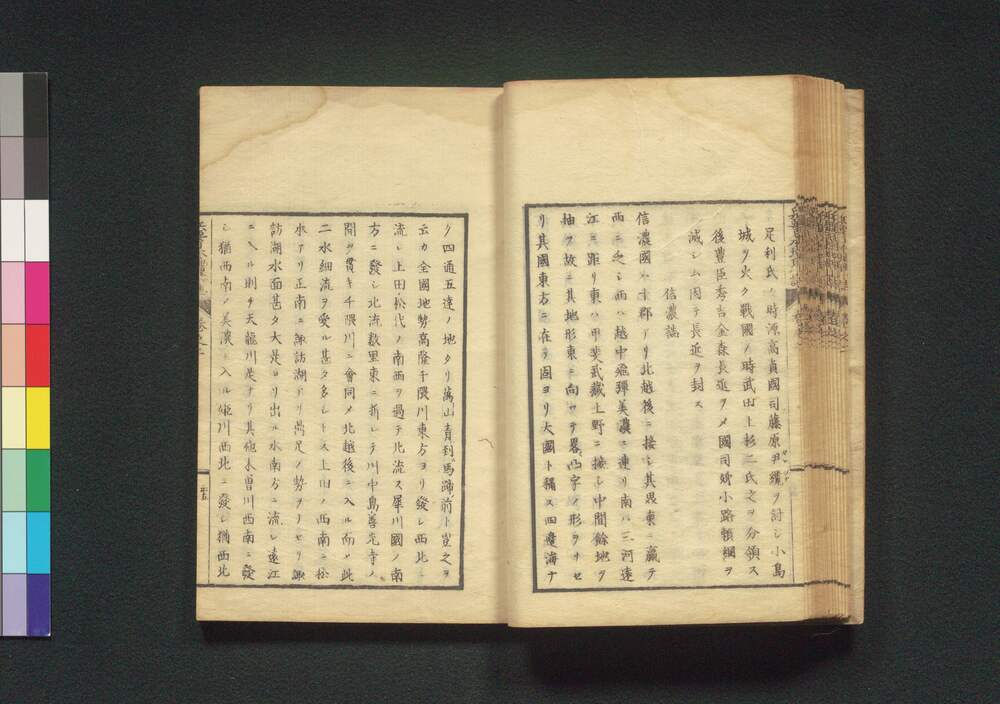 足利氏ノ時源高貞國司藤原尹綱ヲ討シ小島
城ヲ火ク戰國ノ時武田上杉二氏之ヲ分領ス
後豊臣秀吉金森長近ヲメ國司姉小路頼綱ヲ
滅シム因テ長近ヲ封ス
信濃誌
信濃國ハ十郡アリ北越後ニ接シ其畏東ニ贏テ
西ニ乏シ西ハ越中飛彈美濃ニ連リ南ハ三河遠
江ニ距リ東ハ甲斐武藏上野ニ接シ中間餘地ヲ
抽ク故ニ其地形東ニ向ヒテ畧凸字ノ形ヲナセ
リ其國東方ニ在テ固ヨリ大國ト稱ス四邊海ナ
ク四通五達ノ地タリ萬山青到馬蹄前ト豈之ヲ
云カ全國地勢高隆千隈川東方ヨリ發シ西北ニ
流レ上田松代ノ南西ヲ過テ北流ス犀川國ノ南
方ニ發シ北流數里東ニ折レテ川中島善光寺ノ
間ヲ貫キ千隈川ニ會同メ北越後ニ入ル而メ此
二水細流ヲ受ル甚タ多シトス上田ノ西南ニ松
水アリ正南ニ諏訪湖アリ鼎足ノ勢ヲナセリ諏
訪湖水面甚タ大是ヨリ出ル水南方ニ流レ遠江
ニ入ル則チ天龍川是ナリ其他木曽川西南ニ發
シ猶西南ノ美濃ニ入ル姫川西北ニ發シ猶西北